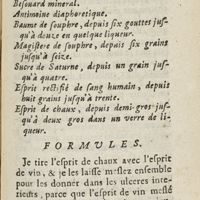 Besouard mineral.
Antimoine diaphoretique.
Baume de souphre, depuis six gouttes jus-
qu'à douze en quelque liqueur.
Magistere de souphre, depuis six grains
jusqu'à seize.
Sucre de Saturne, depuis un grain jus-
qu'à quatre.
Esprit rectifié de sang humain, depuis
huit grains jusqu'à trente.
Esprit de chaux, depuis demi-gros jus-
qu'à deux gros dans un verre de li-
queur.
FORMULES.
Je tire l'esprit de chaux avec l'esprit
de vin, & je les laisse meslez ensemble
pour les donner dans les ulceres inte-
rieurs, parce que l'esprit de vin meslé